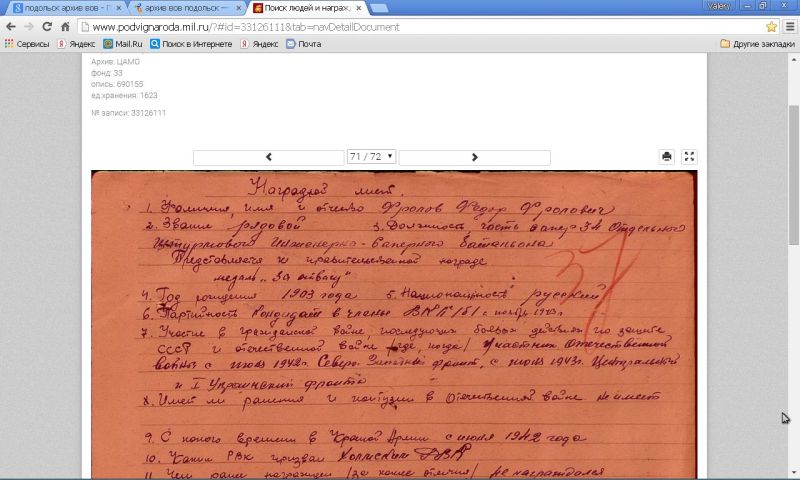 подольск архив вов - П
архив вов подольск —
Поиск людей и награж
Valery
www.podvignaroda.mil.ru/?#id=33126111&tab=navDetailDocument
Сервисы Яндекс Mail.Ru Поиск в Интернете Яндекс Почта Другие закладки
Архив: ЦАМО
фонд: 33
опись: 690155
ед.хранения: 1623
№ записи: 33126111
71 / 72
Наградной лист.
37
1. Фамилия, имя и отчество Фролов Федор Фролович
2. Звание рядовой 3. Должность, часть сапер 34 Отдельного
Штурмового Инженерно-саперного батальона
Представляется к правительственной награде
медаль „За отвагу"
4. Год рождения 1903 года 5. Национальность русский
6. Партийность Кандидат в члены ВКП/б/ с 1943г.
7. Участие в гражданской войне, последующих боевых действиях по защите
СССР и отечественной войне /где, когда/ Участник Отечественной
войны с июня 1942г. Северо-Западный фронт, с июня 1943г. Центральный
и I Украинский фронт
8. Имеет ли ранения и контузии в Отечественной войне не имеет
9. С какого времени в Красной Армии с июня 1942 года
10. Каким РВК призван РВК
11. Чем ранее награжден /за какие отличия/ не награждался